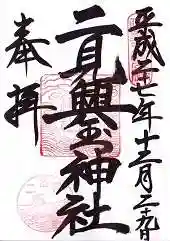 平成二十七年十二月二十九日
二見興玉神社
奉拝